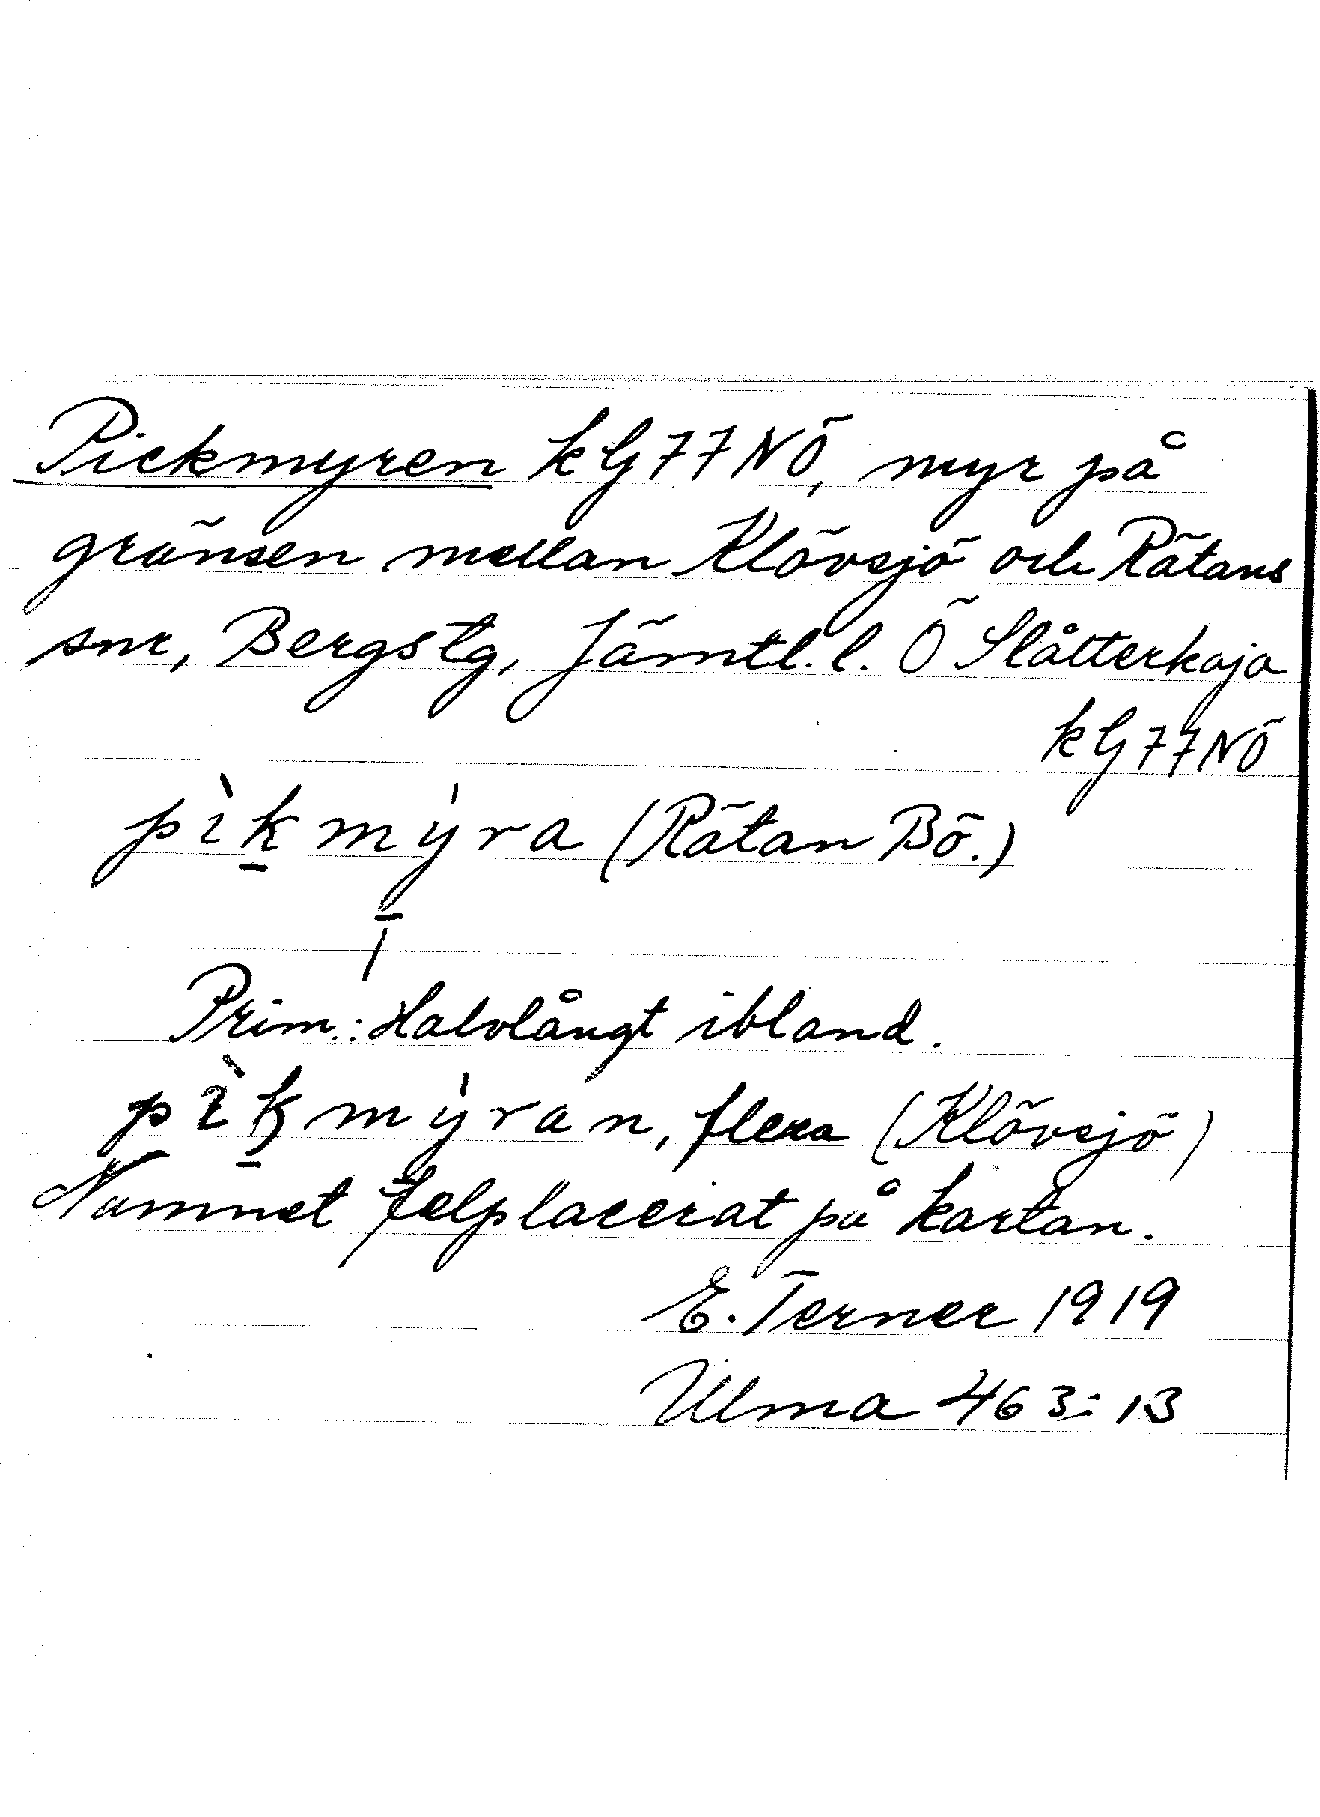 Pickmyren kG77NÖ, myr på
gränsen mellan Klövsjö och Rätans
snr, Bergstg, Jämtl. l. Ö Slåtterkoja
kG77NÖ
pìk̲mýra (Rätan Bö.)
Prim.: Halvlångt ibland.
pìk̲mýran, flera (Klövsjö)
Namnet felplacerat på kartan.
E. Terner 1919
Ulma 463:13